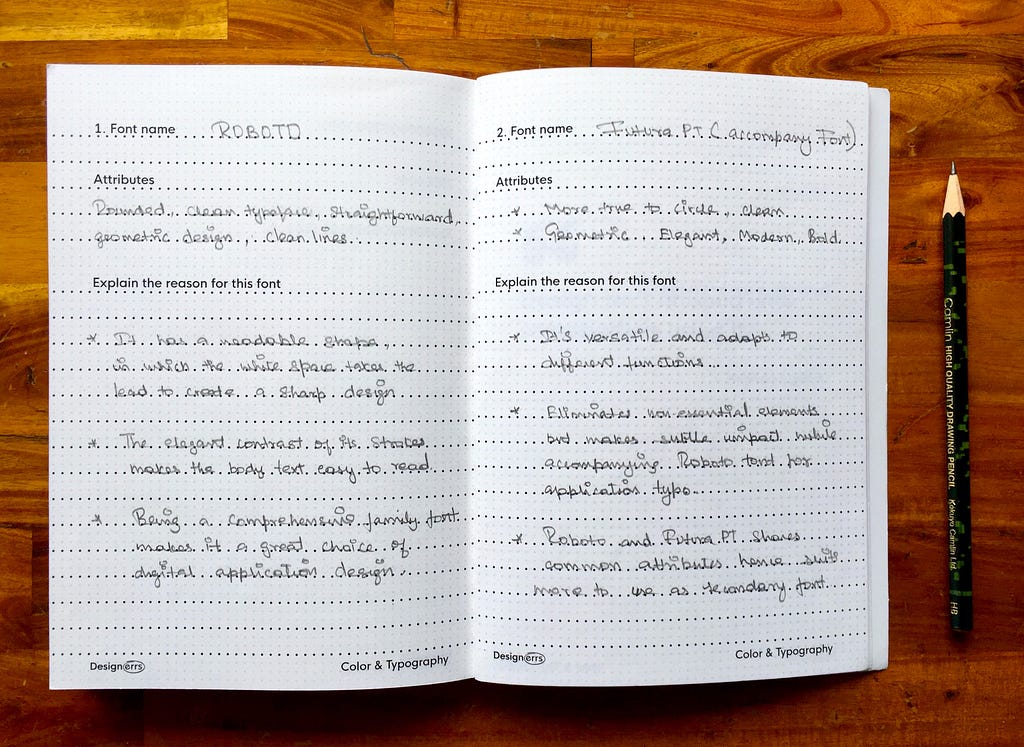 1. Font name ROBOTO
Attributes
Rounded, clean typeface, straightforward,
geometric design, clean lines.
Explain the reason for this font
* It has a readable shape,
in which the white space takes the
lead to create a sharp design
* The elegant contrast of its strokes
makes the body text easy to read
* Being a comprehensive family font
makes it a great choice of
digital application design.
Designerrs
Color & Typography
2. Font name Futura PT (accompany Font)
Attributes
* More true to circle, clean
* Geometric Elegant, Modern, Bold.
Explain the reason for this font
* It's versatile and adapts to
different functions
* Eliminates non-essential elements
but makes subtle impact while
accompanying Roboto text for
application typo.
* Roboto and Futura PT shares
common attributes hence suits
more to use as secondary font.
Designerrs
Color & Typography
Camlin HIGH QUALITY DRAWING PENCIL Kokuyo Camlin Ltd. HB